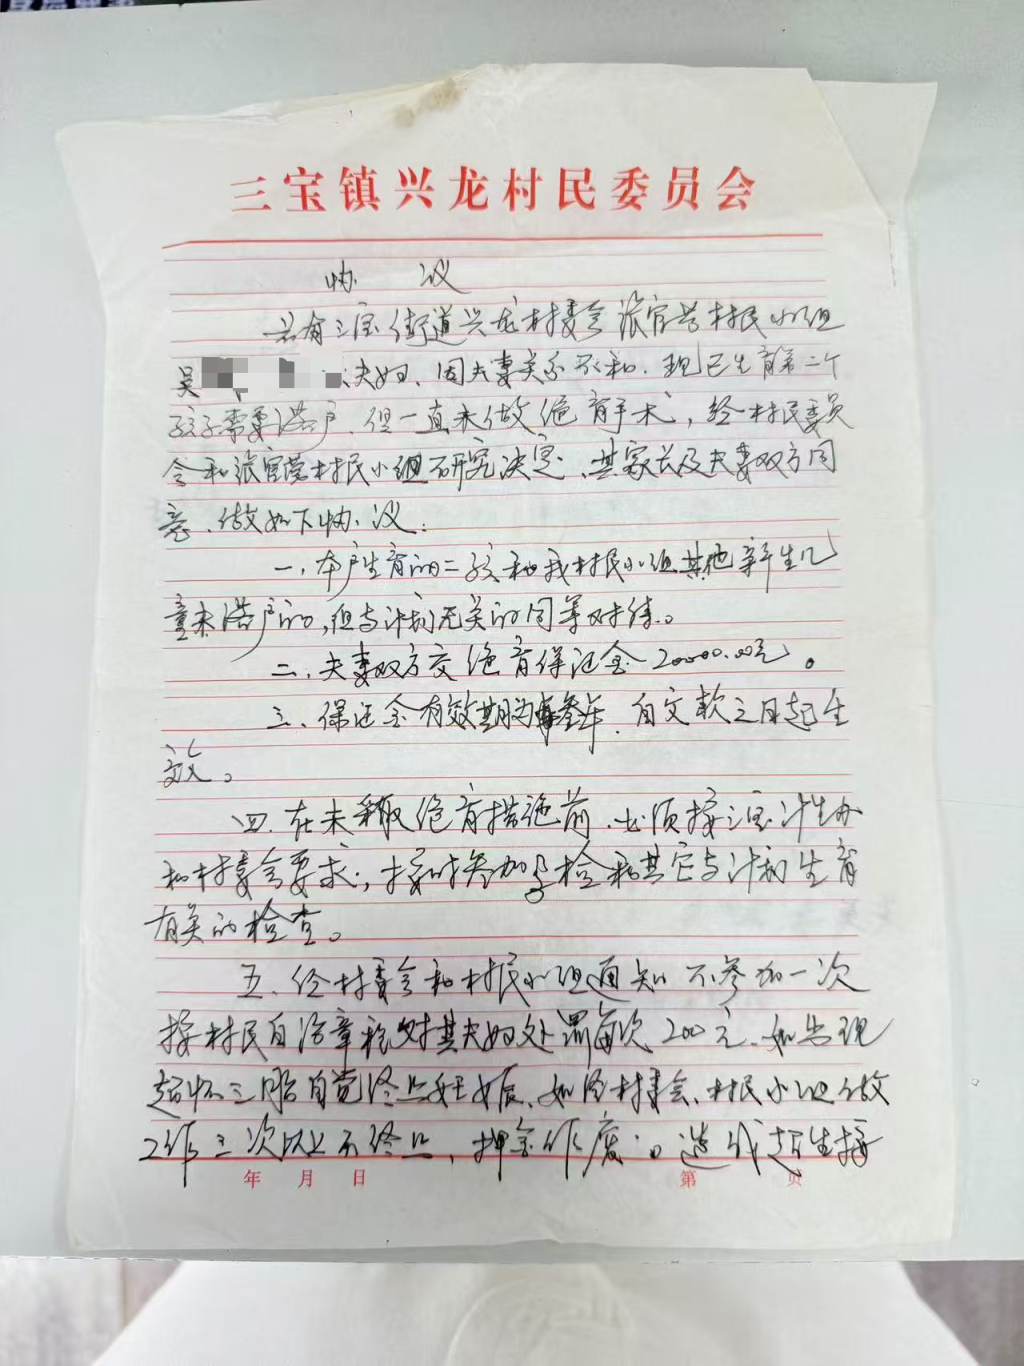 三宝镇兴龙村民委员会
协 议
兹有三宝街道兴龙村委会张官营村民小组
吴 夫妇、因夫妻关系不和.现已生育第二个
孩子需要落户、但一直未做绝育手术，经村民委员
会和张官营村民小组研究决定、其家长及夫妻双方同
意、做如下协议：
一，本户生育的二孩和我村民小组其他新生儿
童未落户的，但与计划无关的同等对待。
二，夫妻双方交绝育保证金20000.00元。
三、保证金有效期为叁年.自交款之日起生
效。
四、在未采取绝育措施前、必须按三宝计生办
和村委会要求，按时参加孕检和其它与计划生育
有关的检查。
五、经村委会和村民小组通知不参加一次
按村民自治章程对其夫妇处罚每次200元、如出现
超怀三胎自觉终止妊娠、如经村委会、村民小组做
工作三次以上不终止，押金作废。造成超生按
年 月 日 第 页